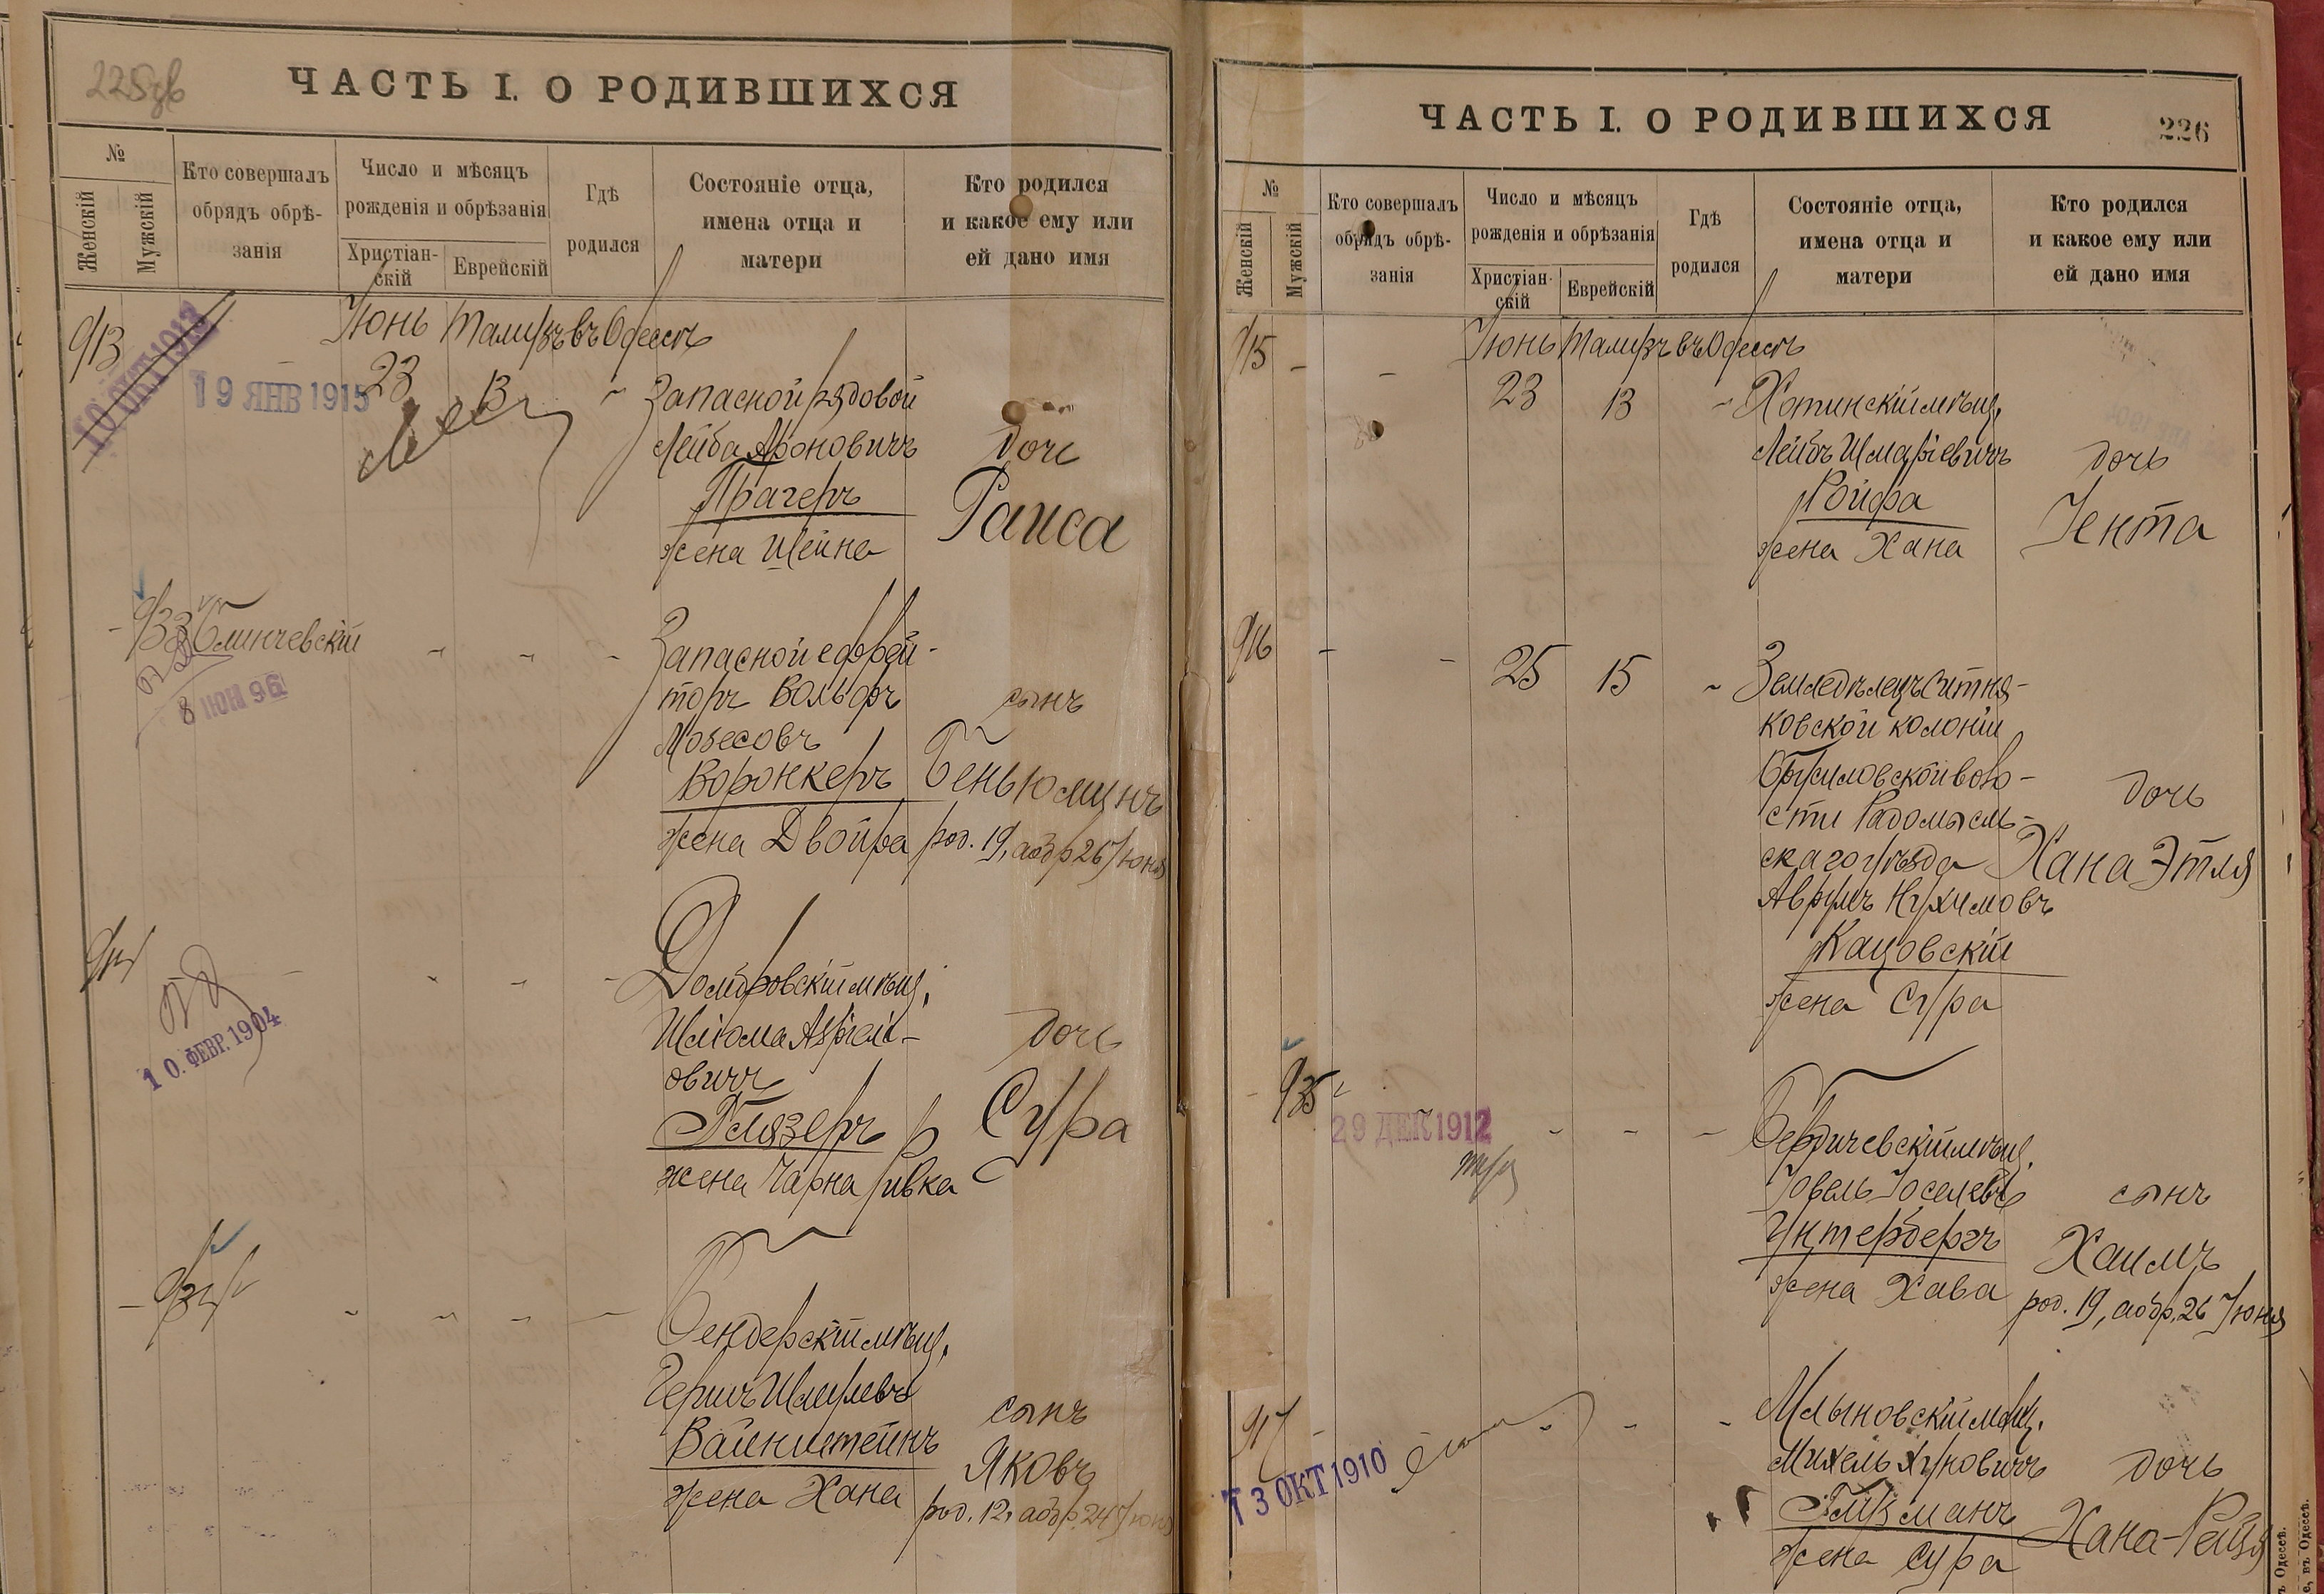 ЧАСТЬ I. О РОДИВШИХСЯ
№
Женскій
Мужскій
Кто совершалъ
обрядъ обрѣ-
занія
Число и мѣсяцъ
рожденія и обрѣзанія
Христіан-
скій
Еврейскій
Гдѣ
родился
Состояніе отца,
имена отца и
матери
Кто родился
и какое ему или
ей дано имя
913
10 ОКТ 1913
19 ЯНВ 1915
Іюнь Тамузъ въ Одессѣ
23 13
Запасной рядовой
Лейба Ароновичъ
Прагеръ
жена Шейна
дочь
Раиса
933
Блинчевскій
8 ІЮН 96
Запасной ефрей-
торъ Вольфъ
Мовесовъ
Воронкеръ
жена Двойра
сынъ
Беньюминъ
род. 19, аобр 26 Іюня
914
10. ФЕВР. 1904
Домбровскій мѣщ.
Шліома Азріели-
овичъ
Глязеръ
жена Чарна Ривка
дочь
Сура
934
Бендерскій мѣщ.
Гершъ Шмулевъ
Вайнштейнъ
жена Хана
сынъ
Яковъ
род. 12, аобр. 24 Іюня
ЧАСТЬ I. О РОДИВШИХСЯ
226
№
Женскій
Мужскій
Кто совершалъ
обрядъ обрѣ-
занія
Число и мѣсяцъ
рожденія и обрѣзанія
Христіан-
скій
Еврейскій
Гдѣ
родился
Состояніе отца,
имена отца и
матери
Кто родился
и какое ему или
ей дано имя
915
Іюнь Тамузъ въ Одессѣ
23 13
Хотинскій мѣщ.
Лейбъ Шмаріевичъ
Ройфа
жена Хана
дочь
Іента
916
25 15
Земледѣлецъ Ситня-
ковской колоніи
волo-
сти Радомысль-
скаго уѣзда
Аврумъ Нухимовъ
Кацовскій
жена Сура
дочь
Хана Этля
935
29 ДЕК 1912
Бердичевскій мѣщ.
Іовель Іоселевъ
Унтербергъ
жена Хава
сынъ
Хаимъ
род. 19, аобр. 26 Іюня
917
13 ОКТ 1910
Млыновскій мѣщ.
Михель Хуновичъ
Гликманъ
жена Сура
дочь
Хана-Рейзя
въ Одессѣ.